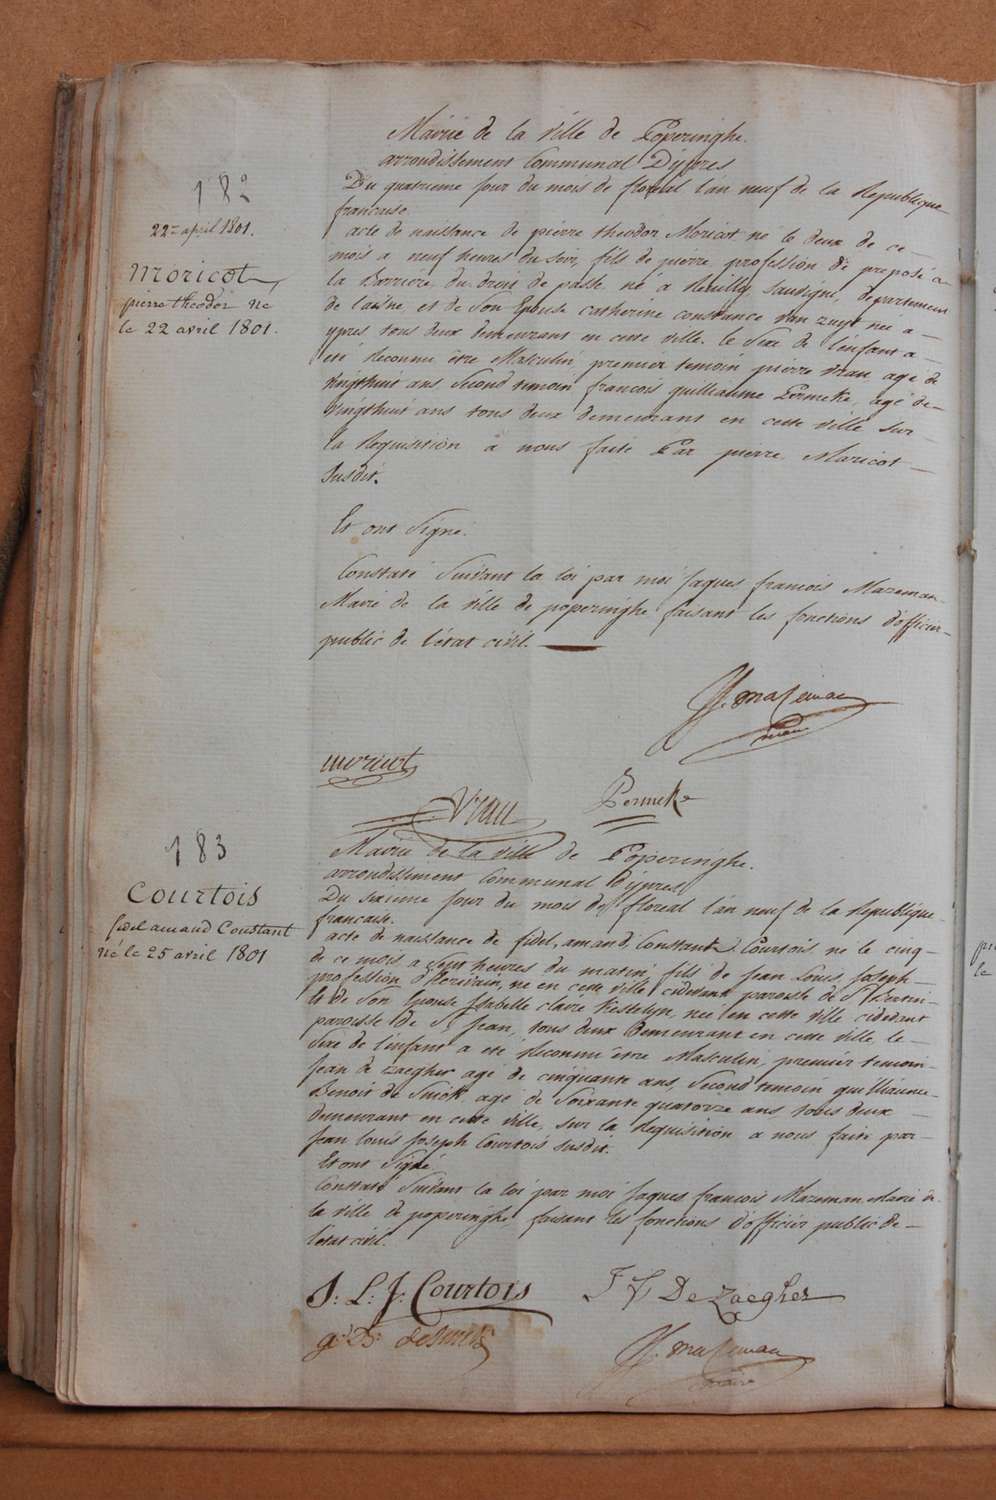 182
22 april 1801.
Moricot
pierre theodor né
le 22 avril 1801.
Mairie de la ville de Poperinghe.
arrondissement Communal D'ypres
Du quatrieme jour du mois de floreal l'an neuf de la Republique
francaise.
acte de naissance de pierre theodor Moricot né le deux de ce
mois a neuf heures du soir, fils de pierre profession de preposé a
la Barriere du droit de passe né a Neuilly Sauvigni, departement
de l'aisne et de son Epouse catherine constance van zuyt né a
ypres tous deux demeurant en cette ville. le Sexe de l'enfant a
eté Reconnu être Masculin, premier temoin pierre vrau agé de
vingthuit ans Second temoin francois guilliaume Permeke, agé de
vingthuit ans tous deux demeurant en cette ville sur
la Requisition a nous faite Par pierre Maricot
susdit.
Et ont Signé.
Constaté Suivant la loi par moi Jaques francois Mazeman
Maire de la ville de poperinghe faisant les fonctions d'officier
public de l'etat civil.
JJ. mazeman
maire
moricot
Vrau
Permeke
183
Courtois
fidel amand Constant
né le 25 avril 1801
Mairie de la ville de Poperinghe.
arrondissiment Communal D'ypres
Du sixieme jour du mois de floreal l'an neuf de la Republique
francaise.
acte de naissance de fidel, amand, Constant Courtois né le cinq
de ce mois a Sept heures du matin, fils de Jean Louis Joseph
profession d'Ecrivain, né en cette ville cidevant paroisse de St Bertin
& de Son Epouse Isabelle claire Kestelyn, neé en cette ville cidevant
paroisse de St Jean, tous deux Demeurant en cette ville, le
Sexe de l'enfant a eté Reconnu être Masculin, premier temoin
Jean de Zaegher agé de cinquante ans, Second temoin guilliaume
Benoit de Smidt agé de Soixante quatorze ans tous deux
demeurant en cette ville, sur la Requisition a nous faite par
Jean louis Joseph Courtois susdit.
Et ont Signé
Constaté Suivant la loi par moi Jaques francois Mazeman Maire de
la ville de poperinghe, faisant les fonctions d'officier public de
l'etat civil.
J: L: J: Courtois
J F De Zaegher
JJ. mazeman
maire